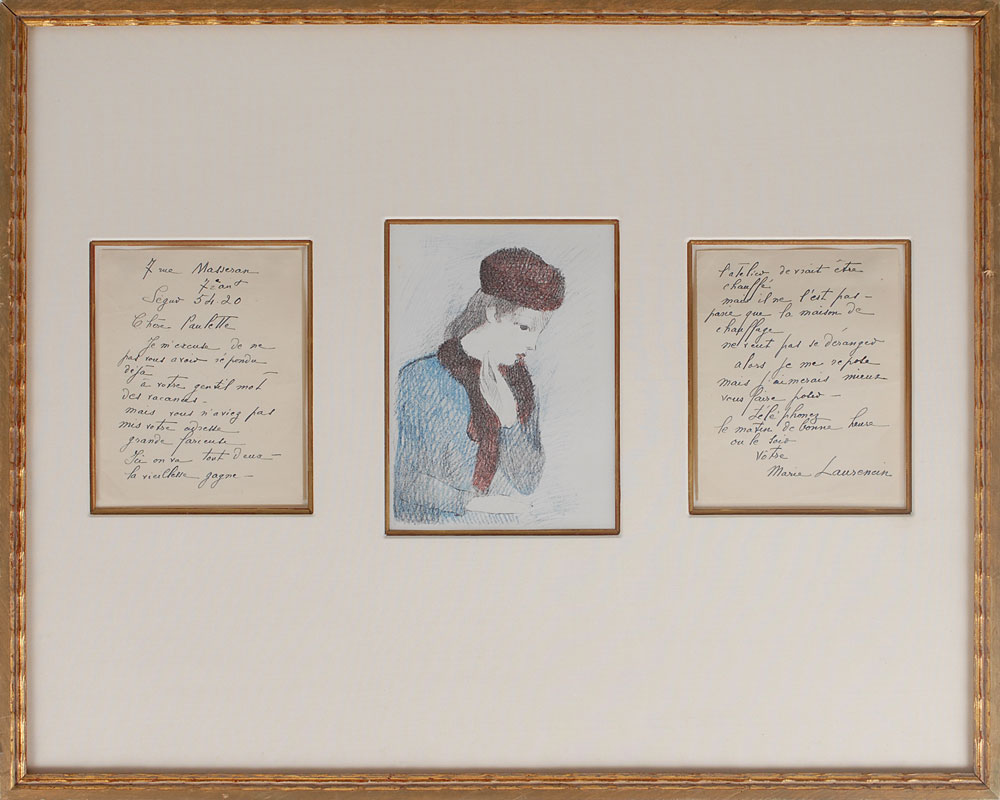 7 rue Masseran
7e arrt
Segur 54 20
Chère Paulette
Je m'excuse de ne
pas vous avoir répondu
déjà
à votre gentil mot
des vacances –
mais vous n'aviez pas
mis votre adresse
grande farceuse
Ici on va tout deux –
la vieillesse gagne –
l'atelier devrait être
chauffé
mais il ne l'est pas –
parce que la maison de
chauffage
ne veut pas se déranger
alors je me repose
mais j'aimerais mieux
vous faire poser –
téléphonez
le matin de bonne heure
ou le soir
Votre
Marie Laurencin